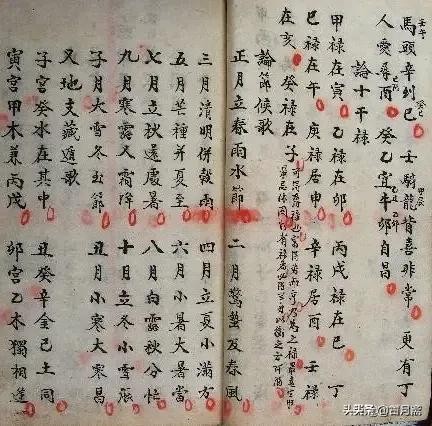 壬午
癸巳
甲辰
馬頭辛到巳 壬騎龍背喜非常 更有丁
人愛尋酉 癸乙宜牛卯自昌
論十干祿
甲祿在寅 乙祿在卯 丙戌祿在巳 丁
巳祿在午 庚祿居申 辛祿居酉 壬祿
在亥 癸祿在子
論節候歌
正月立春雨水節 二月驚蟄及春風
三月清明併穀雨 四月立夏小滿方
五月芒種并夏至 六月小暑大暑當
七月立秋還處暑 八月白露秋分忙
九月寒露又霜降 十月立冬小雪張
子月大雪冬至節 丑月小寒大寒昌
又地支藏遁歌
子宮癸水在其中 丑癸辛金己土同
寅宮甲木兼丙戌 卯宮乙木獨相逢